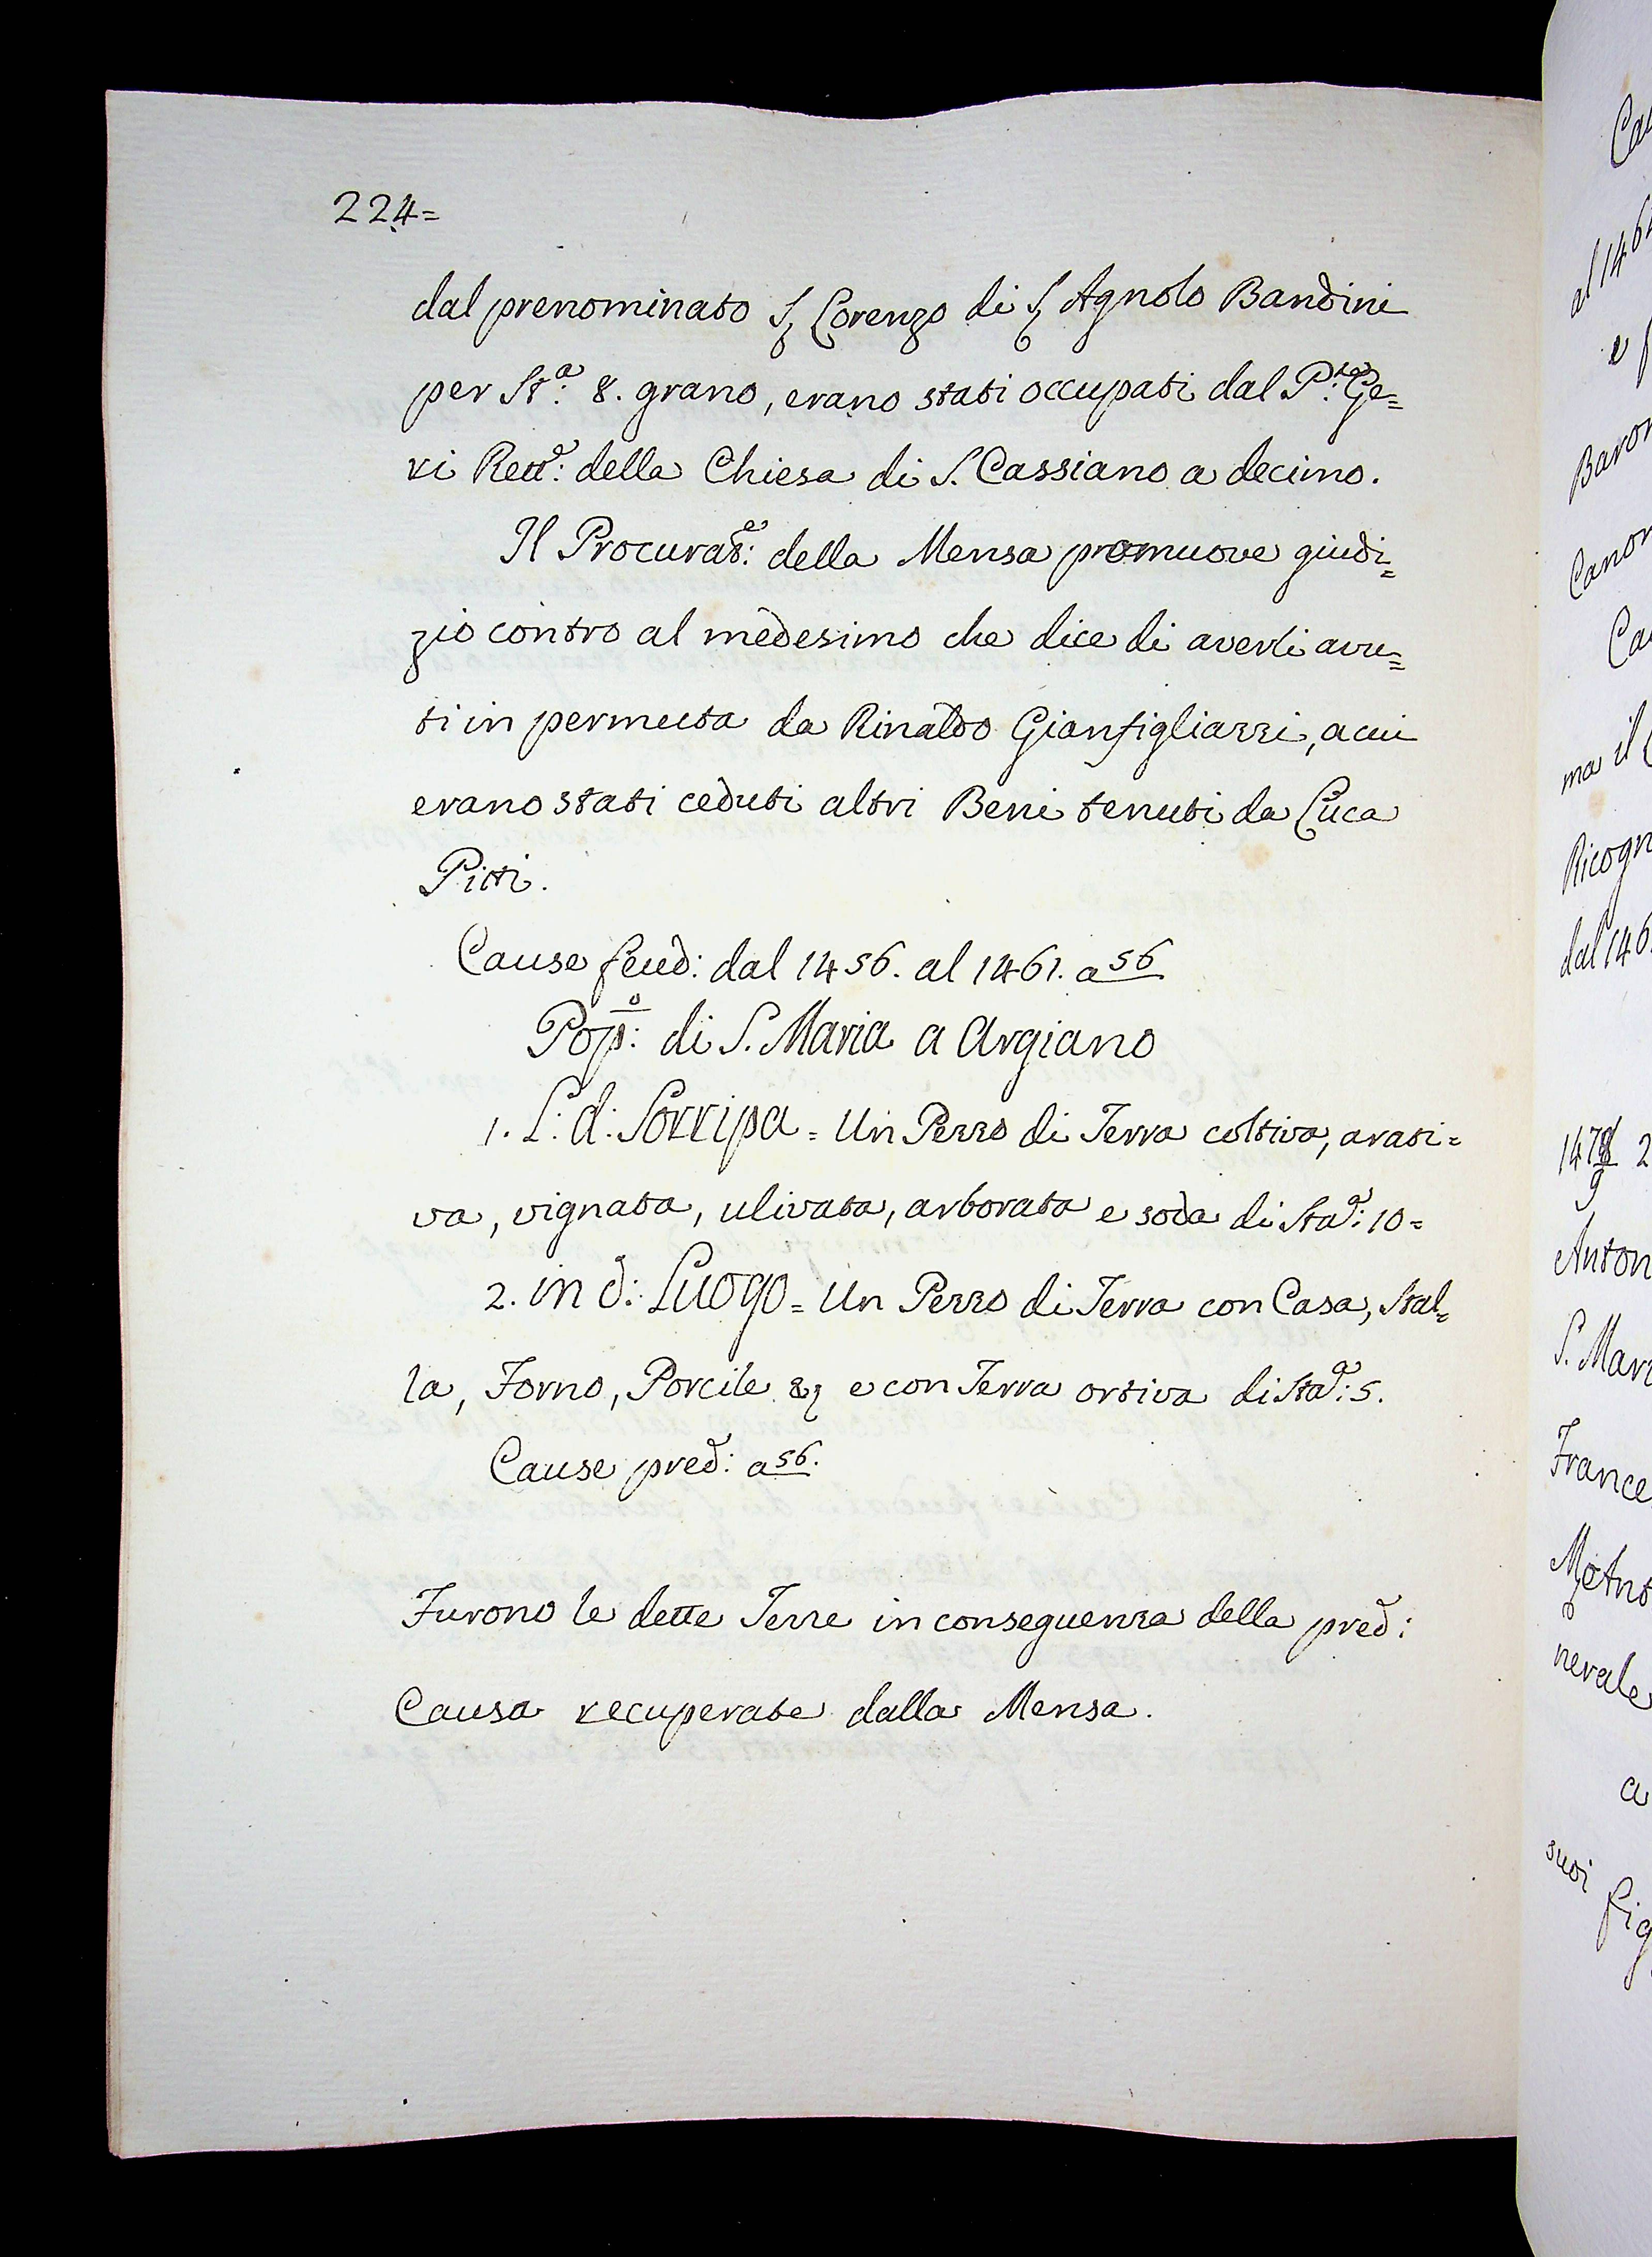 224=
dal prenominato S. Lorenzo di S. Agnolo Bandini
per St.ª 8. grano, erano stati occupati dal P.te Ge=
ri Rett.e: della Chiesa di S. Cassiano a decimo.
Il Procurat.e: della Mensa promuove giudi=
zio contro al medesimo che dice di averli avu=
ti in permuta da Rinaldo Gianfigliazzi, a cui
erano stati ceduti altri Beni tenuti da Luca
Pitti.
Cause feud: dal 1456. al 1461. a 56
Pop.o: di S. Maria a Argiano
1. L: d: Sorripa = Un Pezzo di Terra coltiva, arati=
va, vignata, ulivata, arborata e soda di Sta.a: 10=
2. in d: Luogo = Un Pezzo di Terra con Casa, Stal=
la, Forno, Porcile &c e con Terra ortiva di Sta.a: 5.
Cause pred: a 56.
Furono le dette Terre in conseguenza della pred:
Causa recuperate dalla Mensa.
al 146
e
ma il
dal 146
Anton
S. Mar
France
nerale
a
suoi
fig